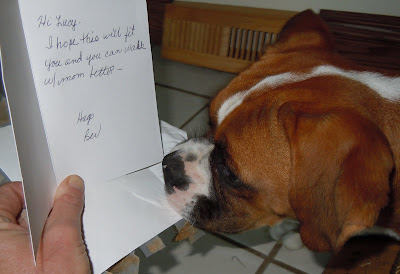 Hi Lucy.
I hope this will fit
you and you can walk
w/ mom better -
Hugs
Bev